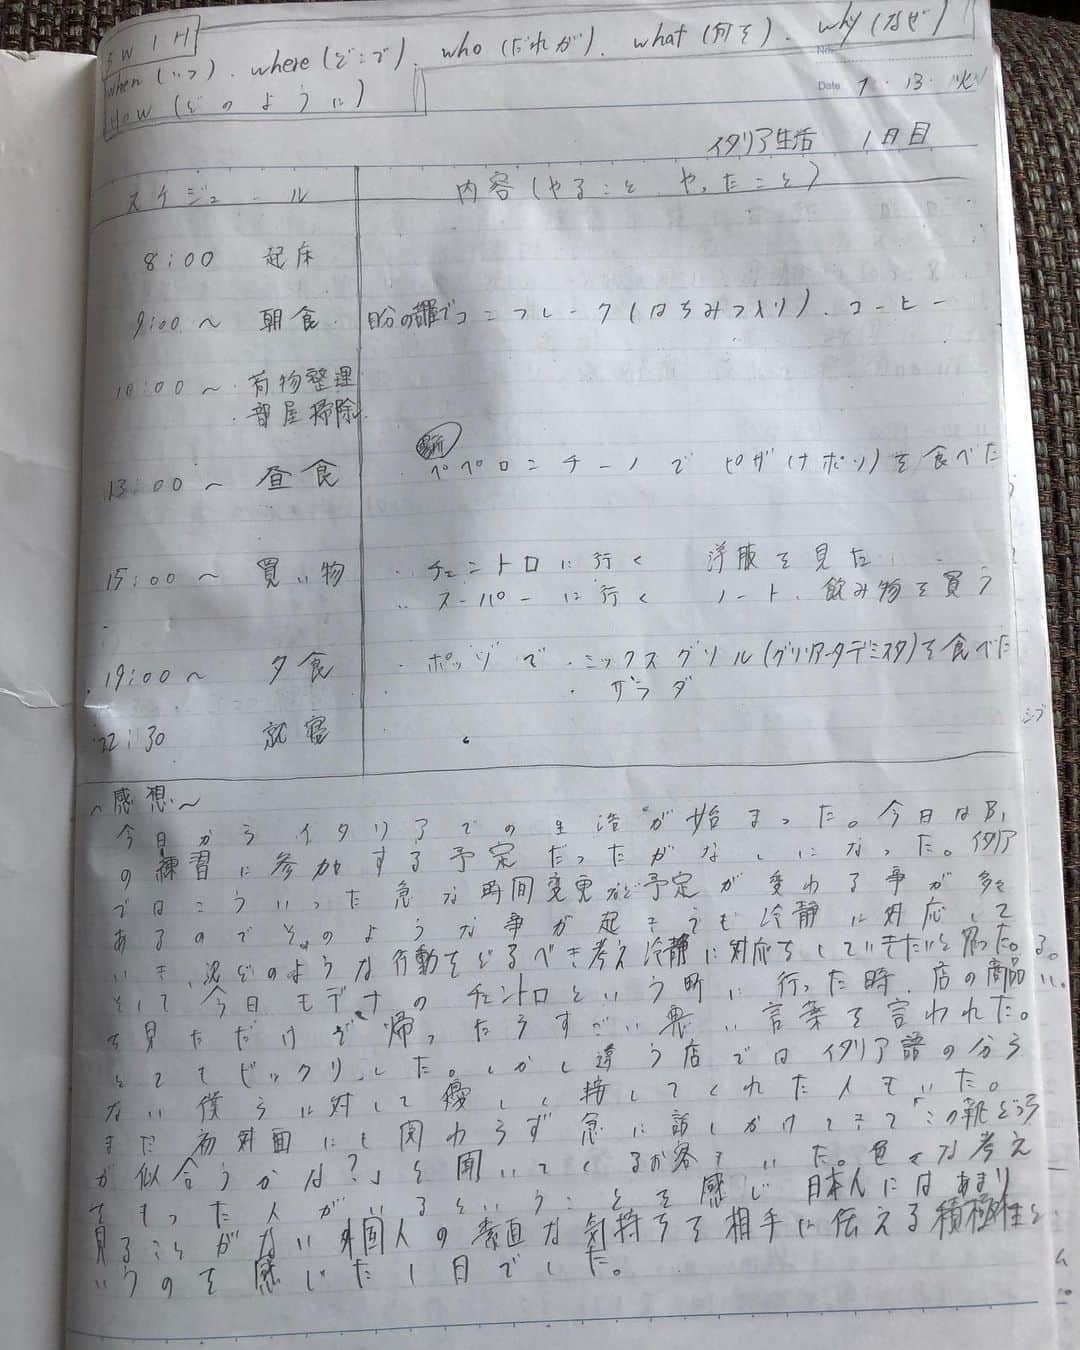 5W1H
when (いつ)、where (どこで)、who (だれが)、what (何を)、why (なぜ)
HOW (どのように)
No.
Date 9・13・火
イタリア生活 1日目
スケジュール 内容(やること やったこと)
8:00 起床
9:00〜 朝食 自分の部屋でコーンフレーク(はちみつ入り)、コーヒー
10:00〜 ・荷物整理
・部屋掃除
場所
13:00〜 昼食 ・ペペロンチーノでピザ(ナポリ)を食べた
15:00〜 買い物 ・チェントロに行く 洋服を見た
・スーパーに行く ノート、飲み物を買う
19:00〜 夕食 ・ポッジで・ミックスグリル(グリアータデミスタ)を食べた
・サラダ
22:30 就寝
〜感想〜
今日からイタリアでの生活が始まった。今日はB1
の練習に参加する予定だったがなしになった。イタリア
ではこういった急な時間変更など予定が変わる事が多々
あるのでそのような事が起きても冷静に対応して
いき、次どのような行動をとるべき考え冷静に対応をしていきたいと思った。
そして今日モデナのチェントロという町に行った時、店の商品
を見ただけで帰ったらすごい悪い言葉を言われた。
とてもビックリした。しかし違う店ではイタリア語の分ら
ない僕らに対して優しく接してくれた人もいた。
また初対面にも関わらず急に話しかけてきて「この靴どっち
が似合うかな?」と聞いてくるお客もいた。色々な考え
をもった人がいるということを感じ日本人にはあまり
見ることがない外国人の素直な気持ちを相手に伝える積極性と
いうのを感じた1日でした。